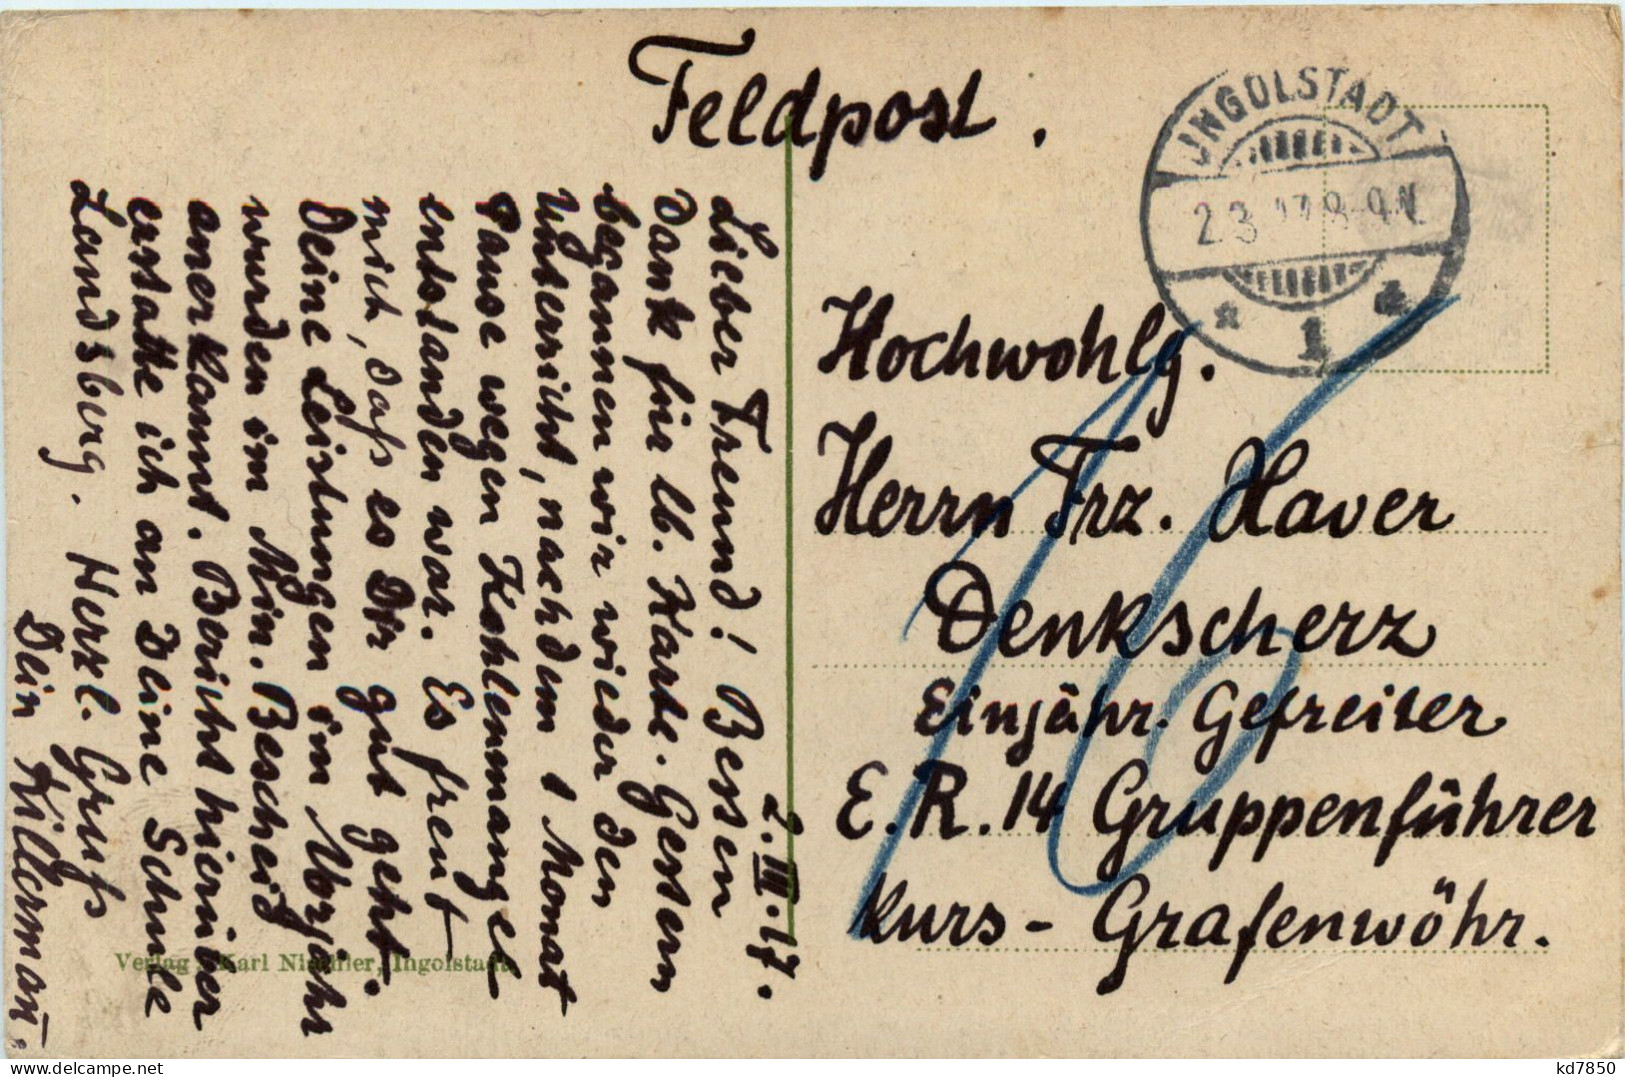 Feldpost.
INGOLSTADT
2 3 17 8-9 N
* 1 a
Hochwohlg.
Herrn Frz. Xaver
Denkscherz
Einjähr. Gefreiter
E. R. 14 Gruppenführer
Kurs - Grafenwöhr.
2. III. 17.
Lieber Freund! Besten
Dank für lb. Karte. Gestern
begannen wir wieder den
Unterricht, nachdem 1 Monat
Pause wegen Kohlenmangel
entstanden war. Es freut
mich, daß es Dir gut geht.
Deine Leistungen im Vorjahr
wurden im Min. Bescheid
anerkannt. Bericht hierüber
erstatte ich an Deine Schule
Landsberg. Herzl. Gruß
Dein Killermañ.
Verlag Karl Ingolstadt.
kd7850